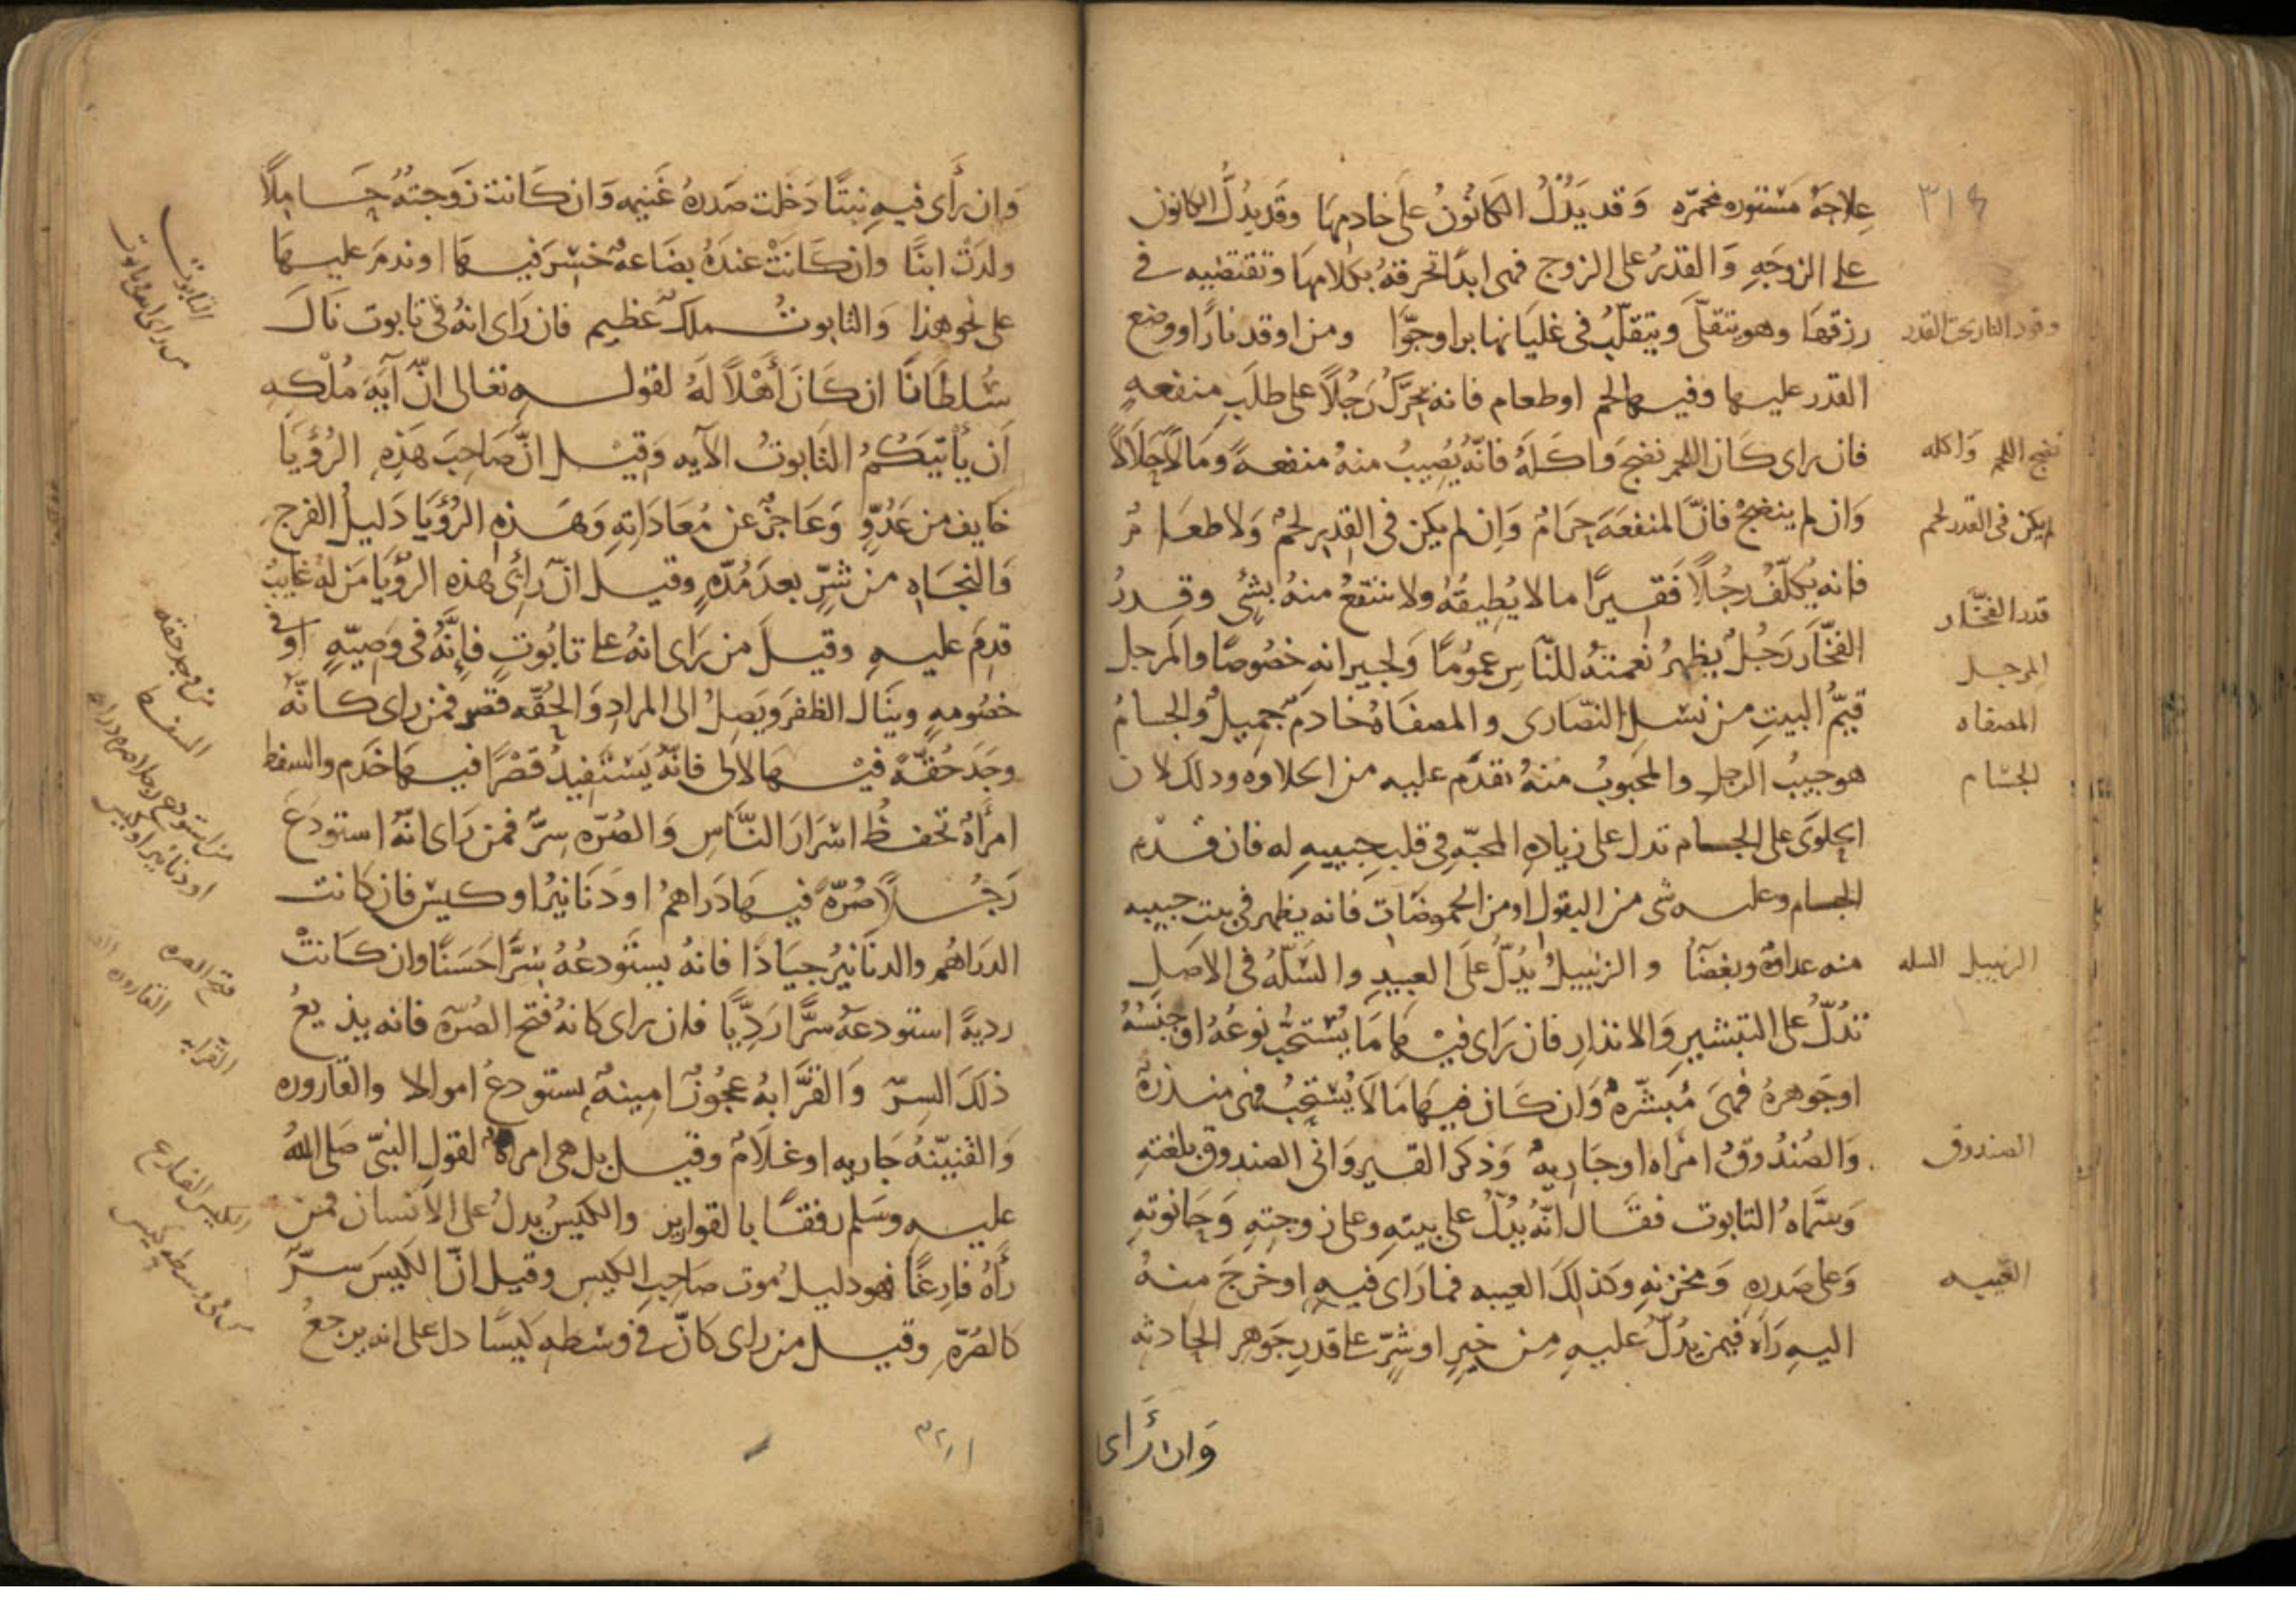 علاجه مستوره مخمره وَقد يَدُلُّ الكانُونُ على خادمها وقد يدُلّ الكانون
على الزوجَهِ وَالقدرُ على الزوج فهى ابدًا تحرقهُ بكلامها وتقتضيه فى
رزقها وهو يتقلّى ويتقلّبُ فى غليانها برا وجوّا ومن اوقد نارًا ووضع
القدر عليها وفيها لحم او طعام فانه يحرّكُ رَجُلًا على طلَبِ منفعهٍ
فان راى كَان اللحم نضج وَاكَلهُ فانّه يُصِيبُ منهُ منفعهً وَمَالًا حَلَالًا
وَان لم ينضجْ فانّ المنفعَهَ حرَامٌ وَاِن لم يكن فى القدرِ لحمٌ وَلا طعَامٌ
فانه يُكلّفُ رجُلًا فَقِيرًا ما لا يُطِيقُهُ ولا ينتفعُ منهُ بشئٍ وقدرُ
الفخّار رَجُلٌ يظهرُ نعمتهُ للنّاسِ عمُومًا وَلجيرانه خصُوصًا والمرجل
قيّمُ البيتِ من نسْلِ النصّارى والمصفاهُ خَادمٌ جميلٌ والجامُ
هو حبيبُ الرجل والمحبوبُ منهُ تقدّم عليه من الحلاوه وذلك لان
الحلوَى على الجام تدل على زيادهِ المحبّهِ فى قلبِ حبيبهِ له فان قدّم
الجام وعليه شى من البقول او من الحموضات فانه يظهر فى بيت حبيبه
منه عداوهٌ وبغضًا والزنبيلُ يدُلّ علَى العبيدِ والسَّلّهُ فى الاصَلِ
تدُلّ على التبشيرِ وَالانذارِ فان رَاى فيهَا مَا يُستحَبُّ نوعُهُ او جنسُهُ
اوجَوهرهُ فهىَ مُبشّرهٌ وَان كَان فيهَا مَا لَا يُستحَبُّ فهى منذرهٌ
وَالصُندُوقُ امرَاه او جَاريهٌ وَذكر القيروَانى الصندوق بلغتهِ
وَسَمّاهُ التابوت فقَال انّهُ يدُلُّ على بيتهِ وعلى زوجتِهِ وَحَانوتهِ
وَعلى صَدرهِ وَمخزنهِ وكذلكَ العيبه فما رَاى فيهِ او خرجَ منهُ
اليهِ رَاه فيمن يدُلّ عليهِ مِن خيرٍ او شرٍّ على قدرِ جَوهرِ الحادثه
وَان رَأى
٣١٤
وقود النار تحت القدر
نضج اللحم وَاكله
لم يكن فى القدر لحم
قدر الفخّار
المرجل
المصفاه
الجام
الزنبيل السله
الصندوق
العيبه
وَان رأَى فيهِ بنتًا دَخَلت صَدرهُ غنيمه وَان كَانت زَوجتهُ حَامِلًا
ولدَتْ ابنًا وان كَانَتْ عندَهُ بضَاعهٌ خسِرَ فيها او ندمَ عليهَا
على نحو هذا وَالتابوتُ ملكٌ عظيم فان رَاى انهُ فى تابوت نَال
سُلطَانًا ان كَانَ أَهْلًا لَهُ لقوله تعالى انّ آيَهَ مُلْكهِ
اَن يَأتيَكُمُ التَّابوتُ الآيه وَقِيل انّ صَاحِبَ هَذهِ الرُؤيَا
خَايف من عَدُوٍّ وَعَاجزٌ عن مُعَادَاتِهِ وَهَذهِ الرُؤيَا دَليلُ الفرج
وَالنجَاهِ من شرٍّ بعدَ مُدّهٍ وقيل انّ رَائِى هذه الرؤيَا مَن لهُ غايبٌ
قدِمَ عليهِ وقيلَ من رَاى انهُ على تابُوتٍ فإِنَّهُ فى وَصِيّهٍ او فى
خصُومهٍ وينَال الظفرَ وَيَصِلُ الى المرادِ وَالحُقّه قصر فمن راى كانّهُ
وجَدَ حُقّهً فيها لآلى فانّهُ يَستفيدُ قصْرًا فيها خَدم والسفط
امرأهٌ تحفظُ اسْرَارَ النَّاسِ وَالصُرّه سِرٌّ فمن رَاى انّهُ استودَعَ
رَجُلًا صُرّهً فيهَا دَراهمُ او دَنَانيرُ او كيس فان كانت
الدرَاهم والدنَانيرُ جيَادًا فانهُ يستَودعُهُ سِرًّا حَسَنًا وان كَانتْ
رديهً استودعَهُ سرًّا رَدِيًّا فان راى كانهُ فتح الصُرّه فانه يذيعُ
ذلكَ السِرّ وَالقَرَّابهُ عجُوزٌ امينهٌ يستودعُ اموالا والقاروره
وَالقنيّنهُ جَاريه او غلَامٌ وقيل بل هى امراهٌ لقولِ النبىّ صَلى اللهُ
عليهِ وسَلم رفقًا بالقوارير والكيسُ يدلُ على الانسان فمن
رآهُ فارغًا فهو دليلُ موت صَاحبِ الكيس وقيل انّ الكيسَ سرٌّ
كالصُرّهِ وقيل من راى كانّ فى وسَطهِ كيسًا دل على انه يرجعُ
التابوت
من راى انه فى تابوت
من وجد حقه
السفط
فتح الصره
القرابه
الكيس الفارغ